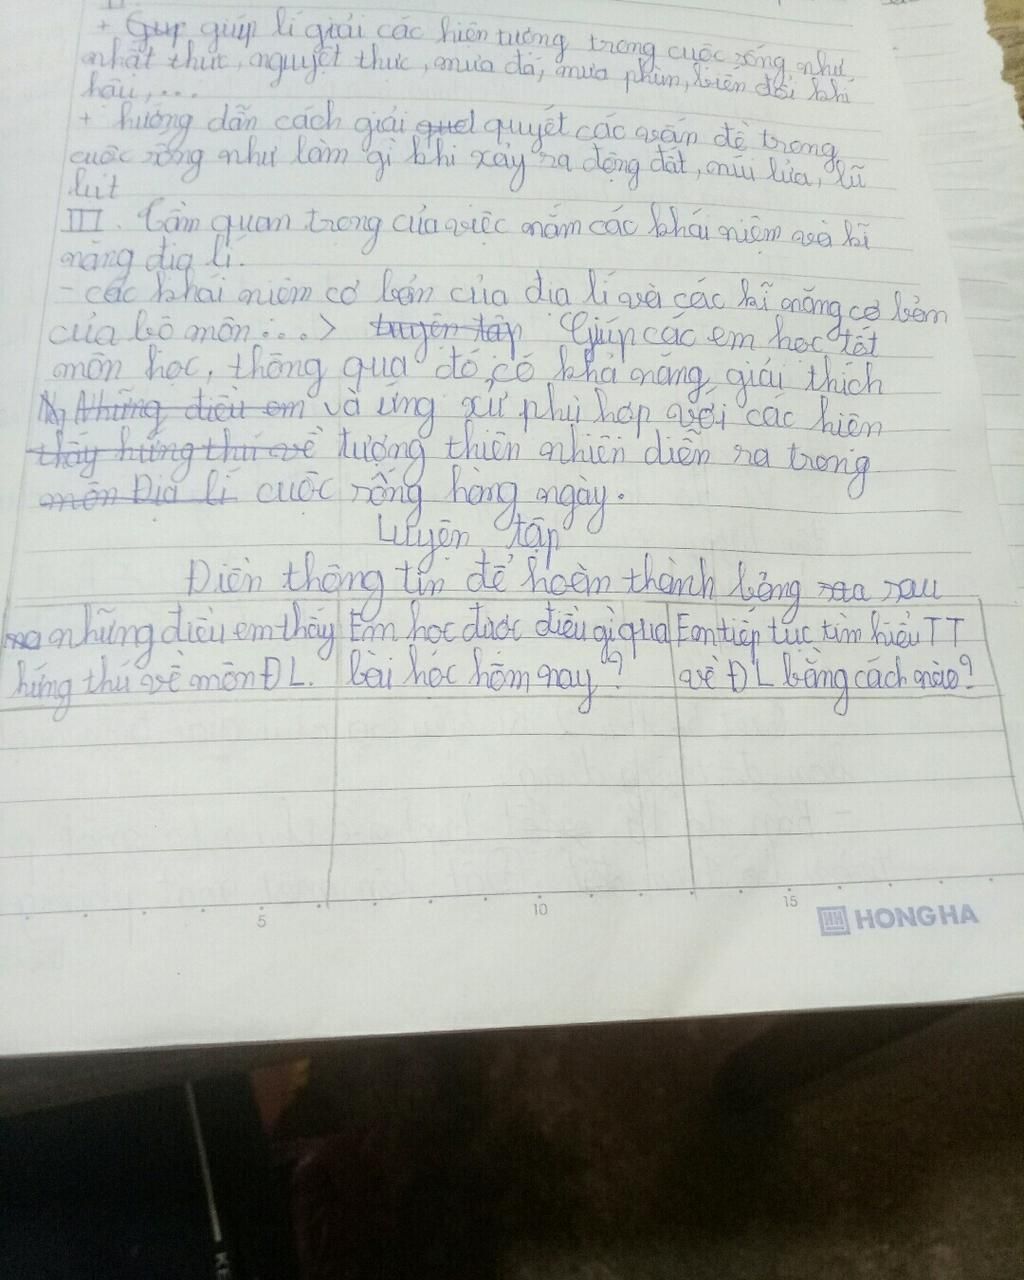 + Gup giúp lí giải các hiện tượng trong cuộc sống như
nhật thực, nguyệt thực, mưa đá, mưa phùn, biến đổi khí
hậu,...
+ hướng dẫn cách giải quet quyết các vấn đề trong
cuộc sống như làm gì khi xảy ra động đất, núi lửa, lũ
lụt
III. Tầm quan trong của việc nắm các khái niệm và kĩ
năng địa lí.
- các khái niệm cơ bản của địa lí và các kĩ năng cơ bản
của bộ môn...> luyện tập Giúp các em học tốt
môn học, thông qua đó, có khả năng giải thích
N, Những điều em và ứng xử phù hợp với các hiện
thấy hứng thú về tượng thiên nhiên diễn ra trong
môn Địa lí cuộc sống hàng ngày.
Luyện tập
Điền thông tin để hoàn thành bảng sau
những điều em thấy hứng thú về môn ĐL.
Em học được điều gì qua bài học hôm nay?
Em tiếp tục tìm hiểu TT về ĐL bằng cách nào?
5 10 15
HH HONG HA